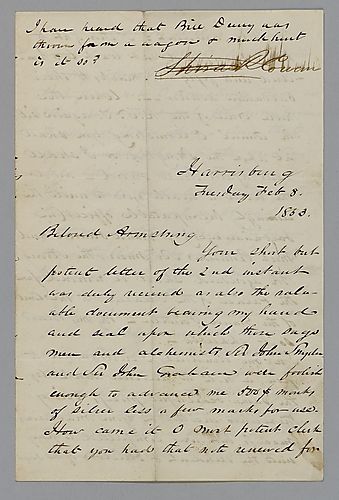 I have heard that Bill Drury was
thrown from a wagon & much hurt
is it so?
Harrisburg
Tuesday, Feb 8.
1853.
Beloved Armstrong
Your short but
potent letter of the 2nd instant
was duly received as also the valu-
able document bearing my hand
and seal upon which those sage
men and alchemists Sir John Snyder
and Sir John were foolish
enough to advance me 500 marks
of silver less a few marks for use.
How came it O most potent clerk
that you had that note renewed for